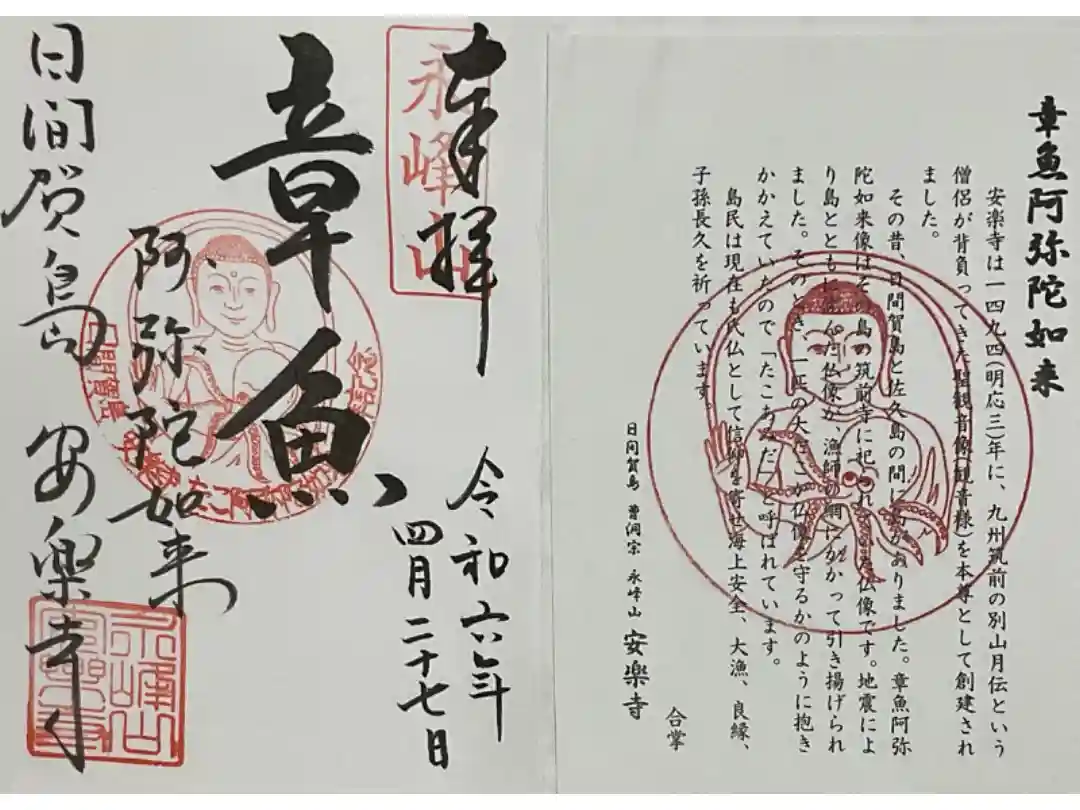 章魚阿弥陀如来
安楽寺は一四九四(明応三)年に、九州筑前の別山月伝という
僧侶が背負ってきた聖観音像(観音様)を本尊として創建され
ました。
その昔、日間賀島と佐久島の間に島がありました。章魚阿弥
陀如来像はその島の筑前寺に祀られていた仏像です。地震によ
り島とともに沈んだ仏像が、漁師の網にかかって引き揚げられ
ました。そのとき、一匹の大だこが仏像を守るかのように抱き
かかえていたので「たこあみだ」と呼ばれています。
島民は現在も氏仏として信仰を寄せ海上安全、大漁、良縁、
子孫長久を祈っています。
合掌
日間賀島 曹洞宗 永峰山 安楽寺
奉拝
永峰山
令和六年
四月二十七日
章魚
阿弥陀如来
日間賀島 安楽寺
永峰山
安楽寺